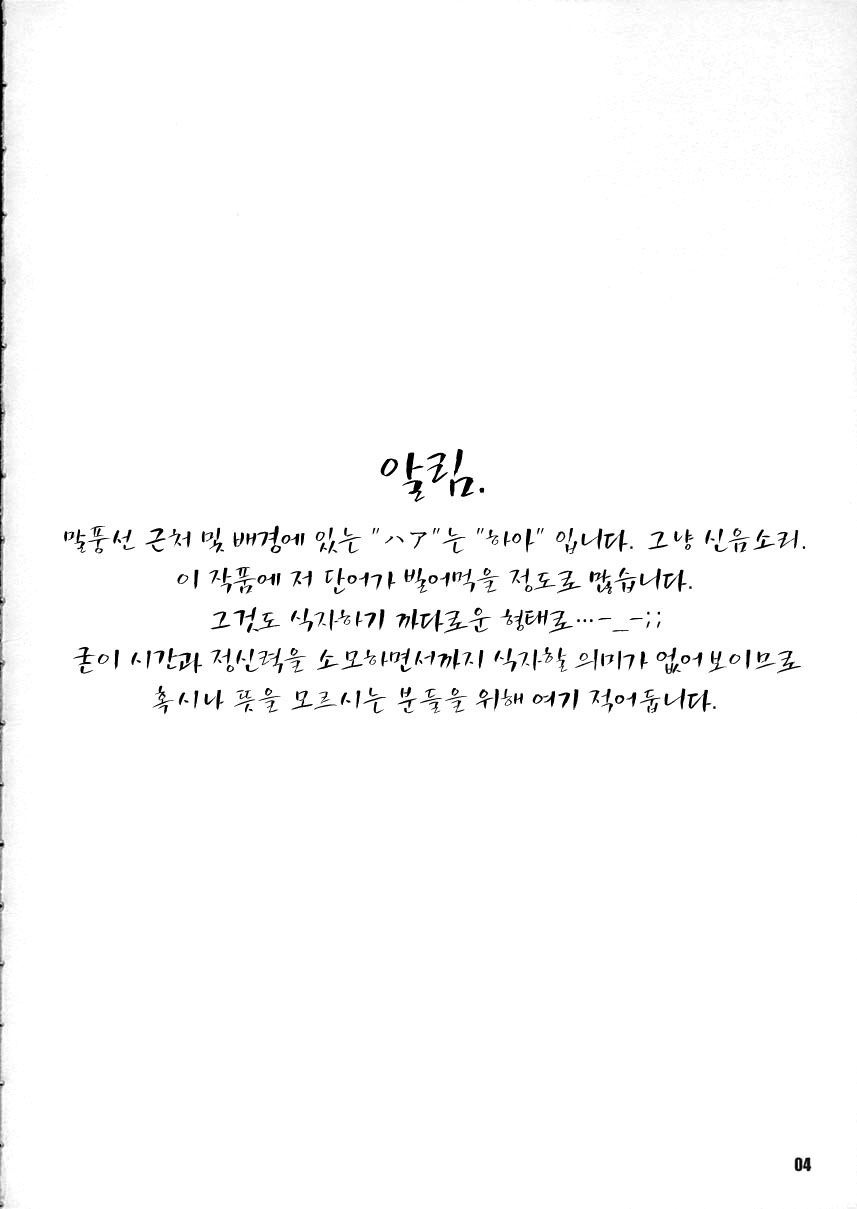 알림.
말풍선 근처 및 배경에 있는 "ハア"는 "하아" 입니다. 그냥 신음소리.
이 작품에 저 단어가 빌어먹을 정도로 많습니다.
그것도 식자하기 까다로운 형태로…-_-;;
굳이 시간과 정신력을 소모하면서까지 식자할 의미가 없어보이므로
혹시나 뜻을 모르시는 분들을 위해 여기 적어둡니다.
04